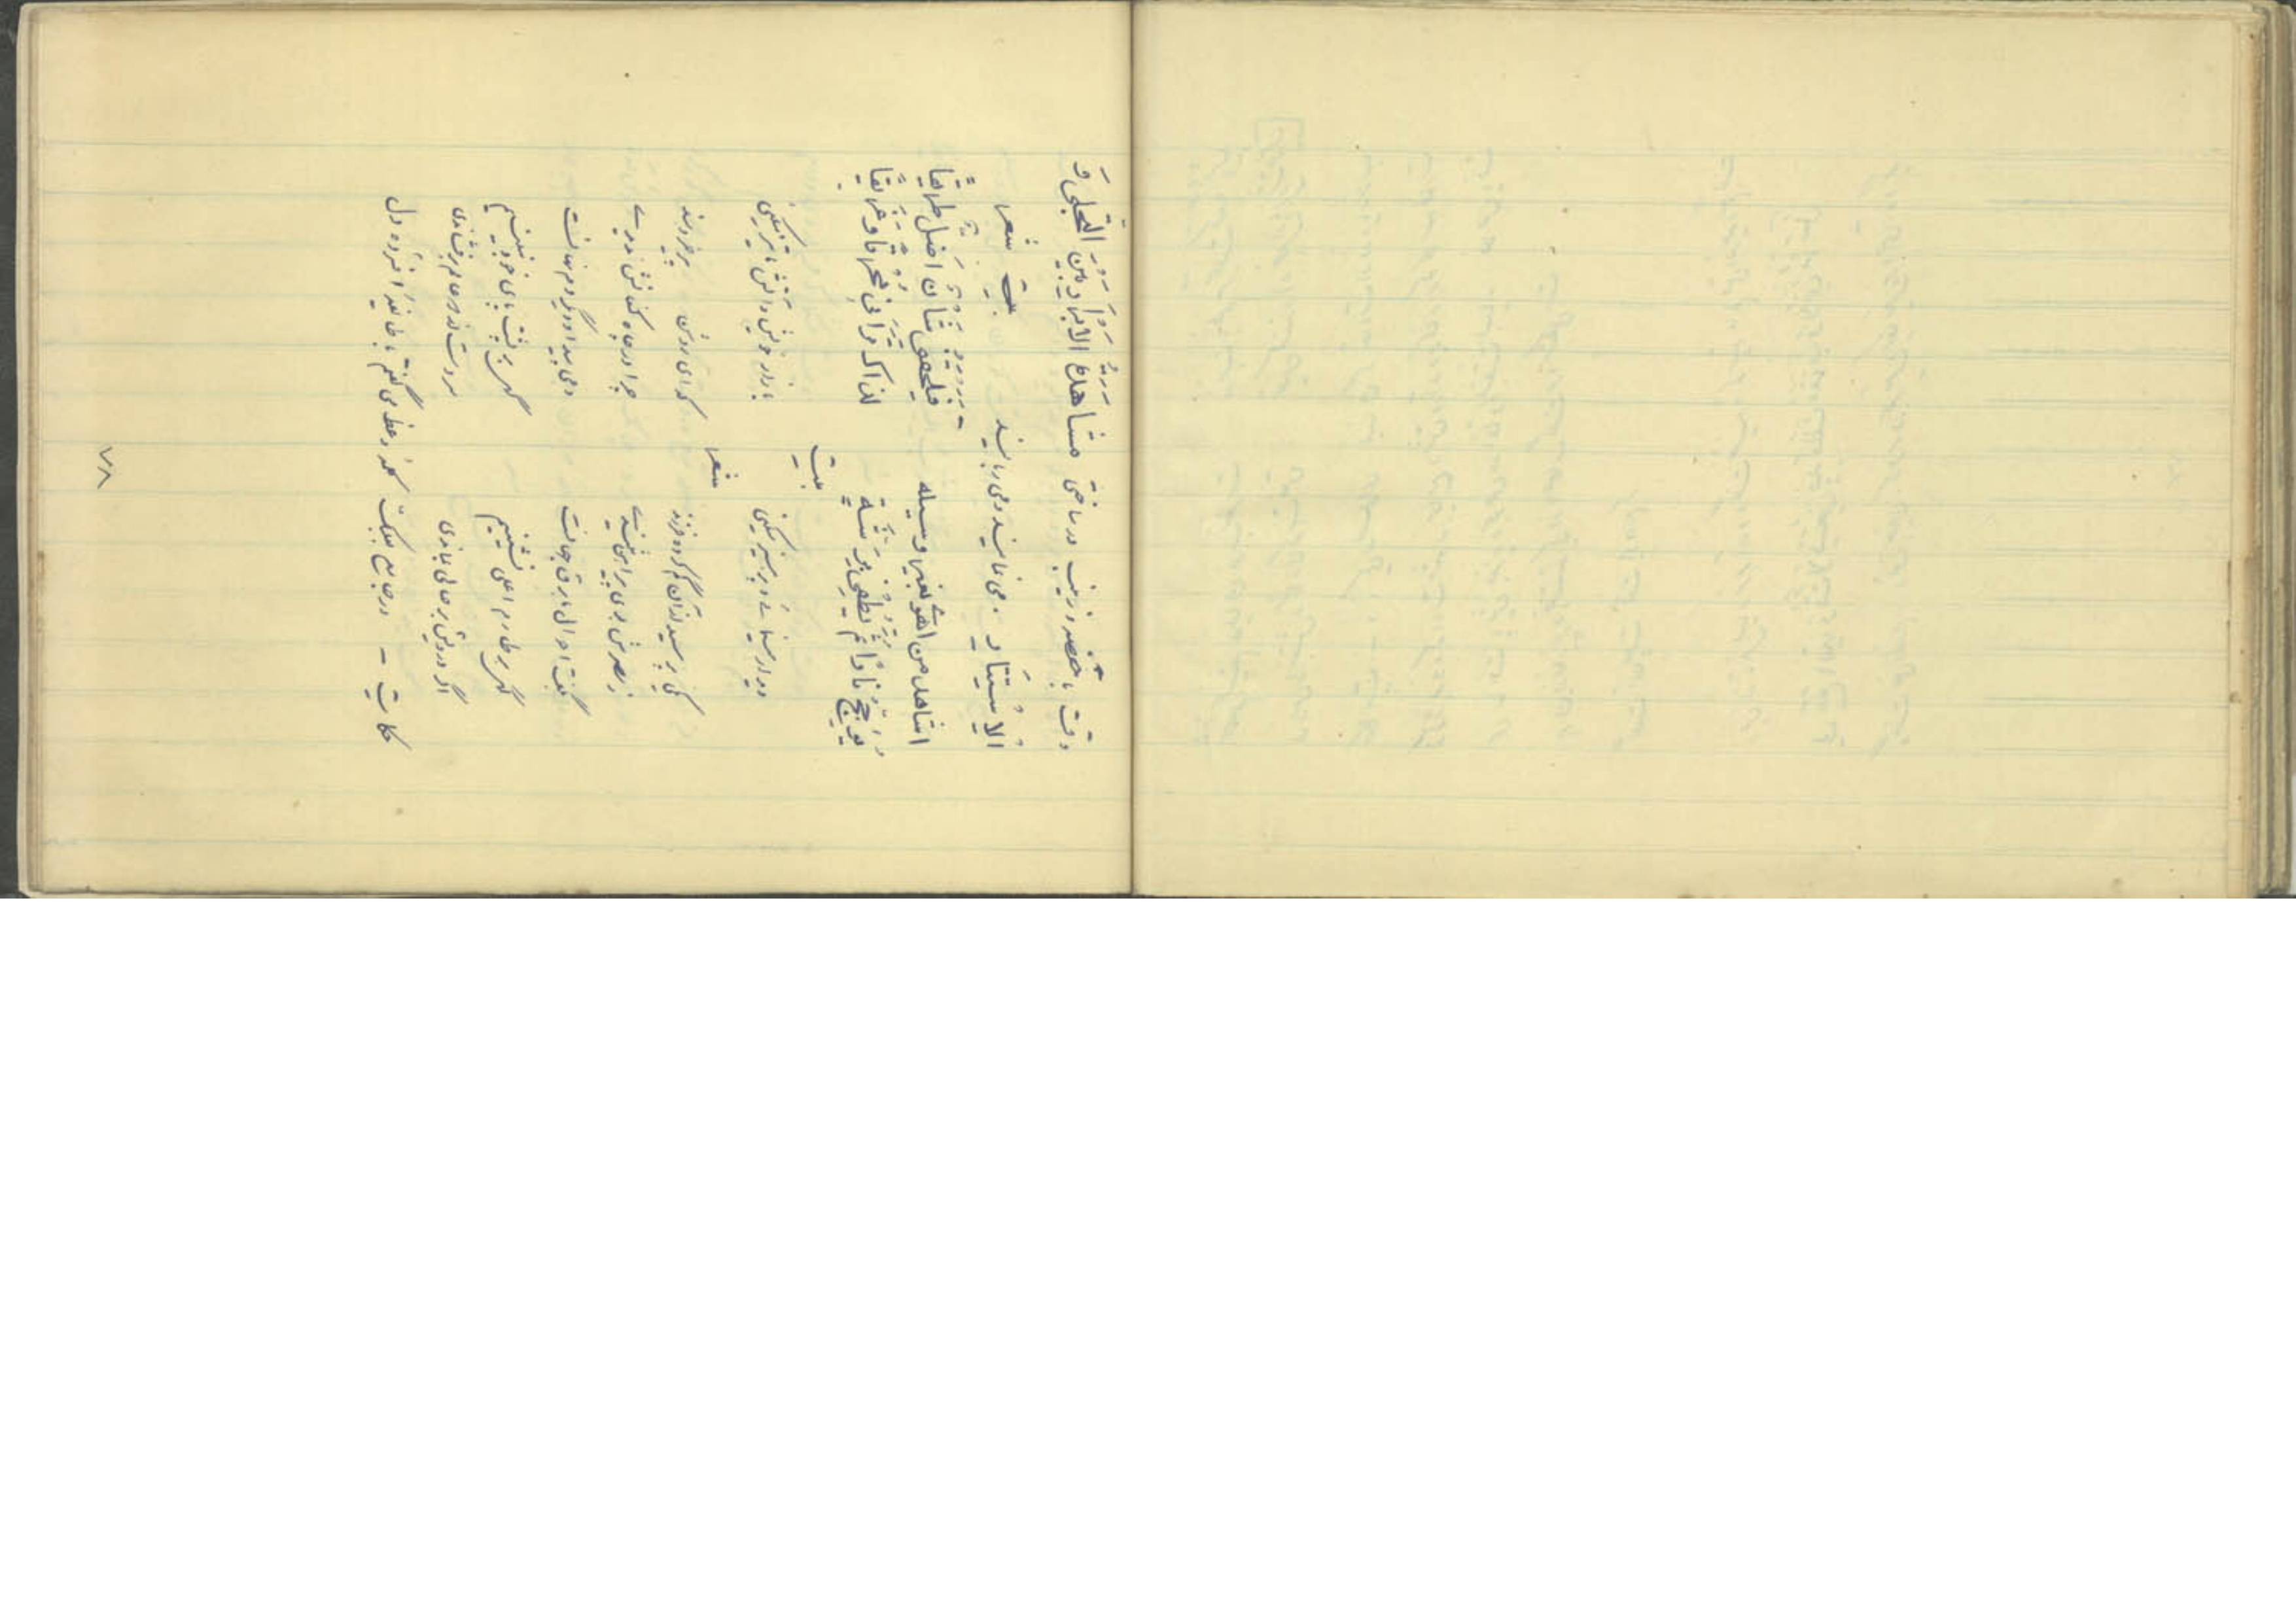 وقت با حفصه و زینب در ساختی مُشَاهَدَةُ الأَبْرَارِ بَيْنَ التَّجَلِّي وَ
الْإِسْتِتَارِ . می نمایند و می ربایند بیت شعر
اشاهد من اهوی بغیر وسیله فَيَلْحَقُنِي شَأْنٌ اَضَلُّ طَرِيقًا
يُؤَجِّجُ نَارًا ثُمَّ يُطْفِي بِرَشَّةٍ لذاک ترانی مُحْرَقًا وَ غَرِيقًا
بیت
دیدار مینمائی و پرهیز میکنی بازار خویش و آتش ما تیز میکنی
شعر
یکی پرسید ازان گم کرده فرزند که ای روشن گهر پیر خردمند
ز مصرش بوی پیراهن شنیدی چرا در چاه کنعانش ندیدی
بگفت احوال ما برق جهانست دمی پیدا و دیگر دم نهانست
گهی بر طارم اعلی نشینیم گهی بر پشت پای خود نبینیم
اگر درویش بر حالی بماندی سر و دست از دو عالم برفشاندی
حکایت - در جامع بعلبک کلمهٔ وعظ می گفتم با طایفهٔ افسرده دل
٧٨